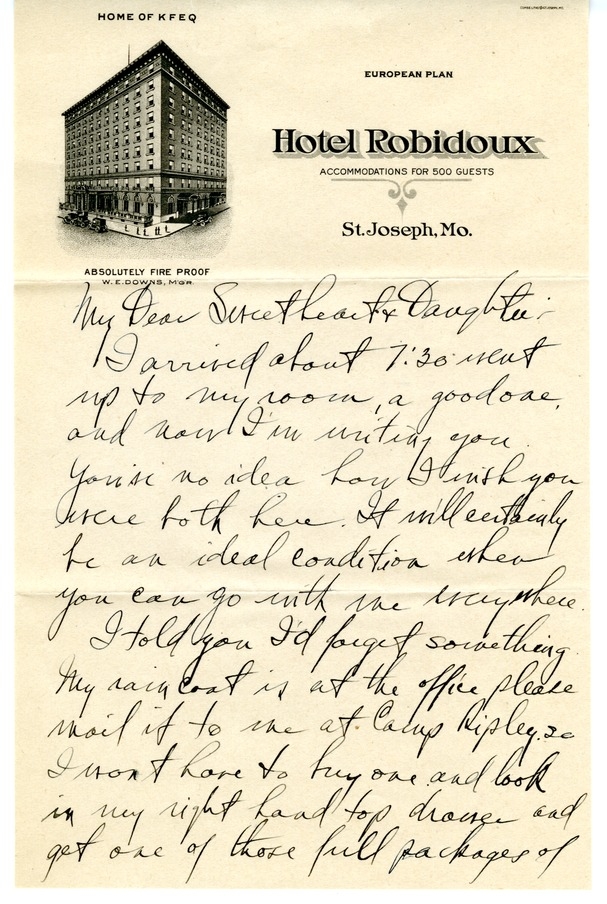 HOME OF KFEQ
EUROPEAN PLAN
Hotel Robidoux
ACCOMMODATIONS FOR 500 GUESTS
St. Joseph, Mo.
ABSOLUTELY FIRE PROOF
W. E. DOWNS, MGR.
My Dear Sweetheart & Daughter:-
I arrived about 7:30 went
up to my room, a good one,
and now I'm writing you.
You've no idea how I wish you
were both here. It will certainly
be an ideal condition when
you can go with me everywhere.
I told you I'd forget something.
My rain coat is at the office please
mail it to me at Camp Ripley. so
I won't have to buy one and look
in my right hand top drawer and
get one of those full packages of